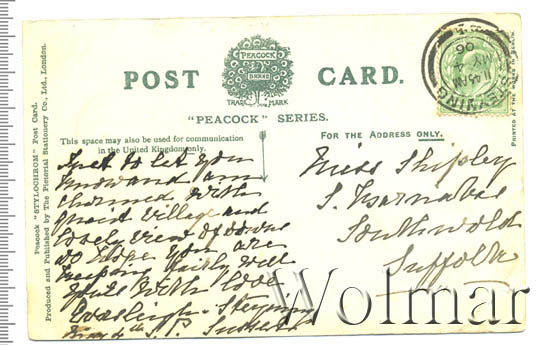 POST CARD.
PEACOCK
BRAND
TRADE MARK
"PEACOCK" SERIES.
This space may also be used for communication
in the United Kingdom only.
FOR THE ADDRESS ONLY.
Just to let you
know and am
charmed with
quaint village and
lovely view of downs
do hope you are
keeping fairly well
Yours with love
Steyning
May 4th S.P. Sussex
Miss Shipley
S. Barnabas
Southwold
Suffolk
STEYNING
11.45 AM
MY 4
06
Peacock "STYLOCHROM" Post Card.
Produced and Published by The Pictorial Stationery Co., Ltd., London.
PRINTED AT THE
Wolmar